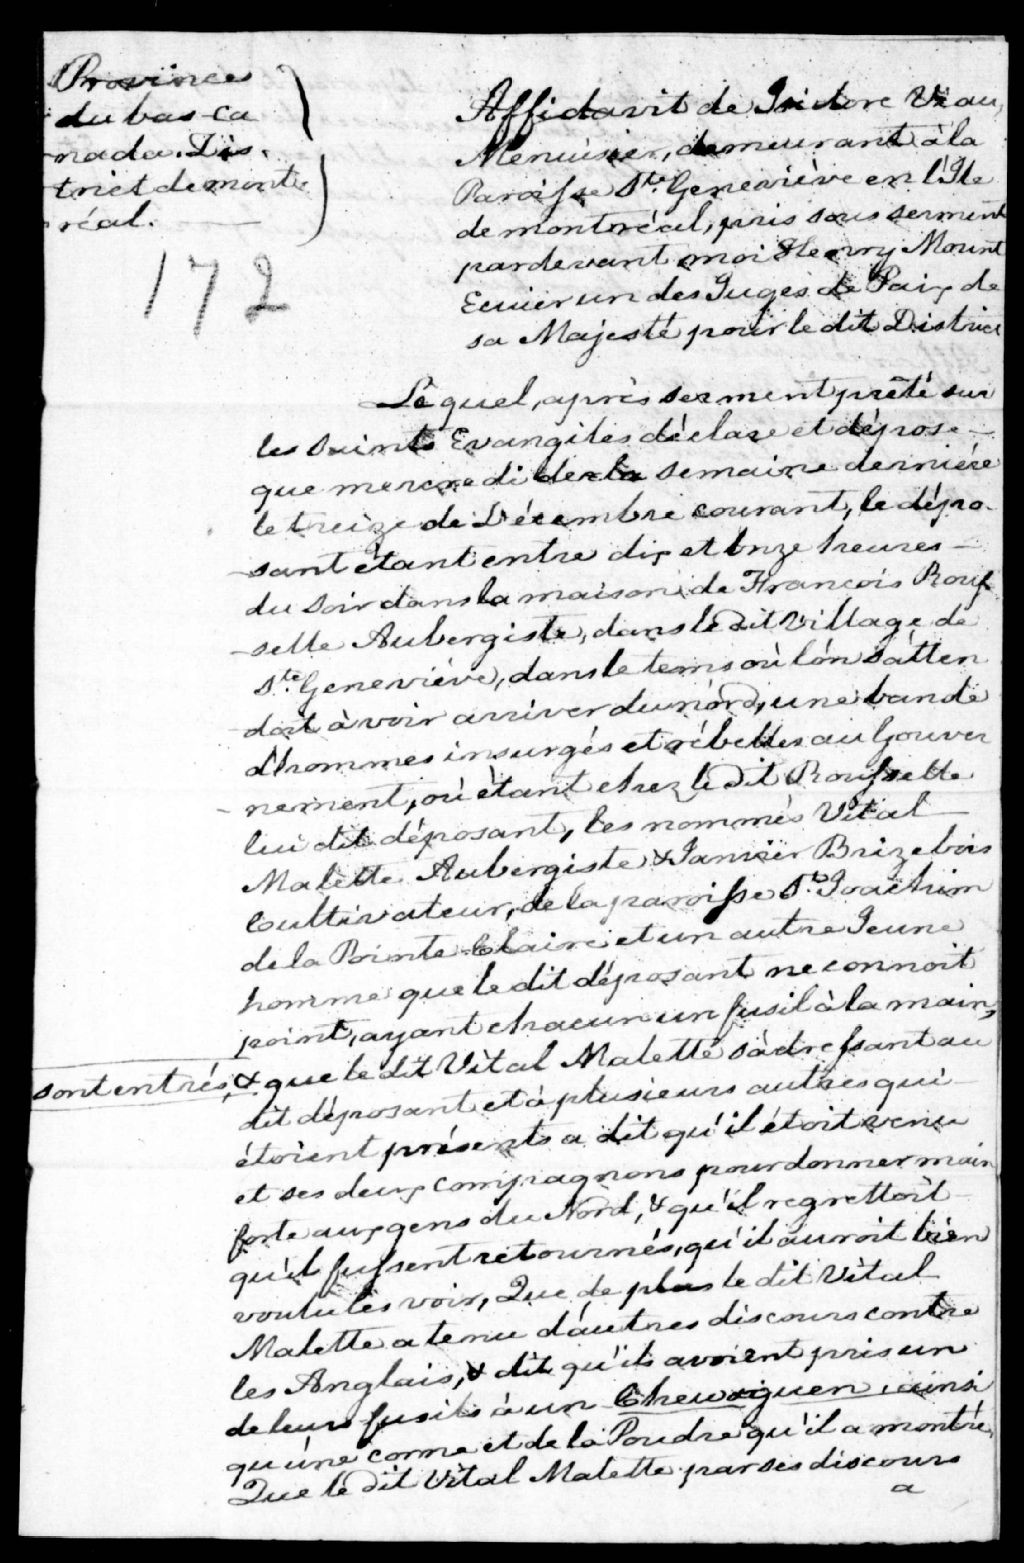 Province
du bas-ca
nada. Dis-
trict de mont-
réal.
172
Affidavit de Isidore Viau,
Menuisier, demeurant à la
Paroisse Ste. Geneviève en l'Ile
de montréal, pris sous serment
pardevant moi Henry Mount
Ecuier un des Juges de Paix de
sa Majesté pour le dit District
Lequel, après serment prêté sur
les Saints Evangiles déclare et dépose
que mercredi de la semaine dernière
le treize de Décembre courant, le dépo-
sant étant entre dix et onze heures
du soir dans la maison de François Rous
selle Aubergiste, dans le dit village de
Ste Geneviève, dans le tems où l'on s'atten
doit à voir arriver du nord, une bande
d'hommes insurgés et rébelles au Gouver
nement, où étant chez le dit Rousselle
lui dit déposant, les nommés Vital
Malette Aubergiste & Janvier Brizebois
Cultivateur, de la paroisse St. Joachim
de la Pointe Claire et un autre Jeune
homme que le dit déposant ne connoit
point, ayant chacun un fusil à la main,
sont entrés, & que le dit Vital Malette s'adressant au
dit déposant et à plusieurs autres qui
étoient présents a dit qu'il étoit venu
et ses deux compagnons pour donner main
forte aux gens du Nord, & qu'il regrettoit
qu'il fussent retournés, qu'il auroit bien
voulu les voir, Que de plus le dit Vital
Malette a tenu d'autres discours contre
les Anglais, & dit qu'ils avoient pris un
de leurs fusils à un Chewaguen, ainsi
qu'une corne et de la Poudre qu'il a montré,
Que le dit Vital Malette par ses discours
a